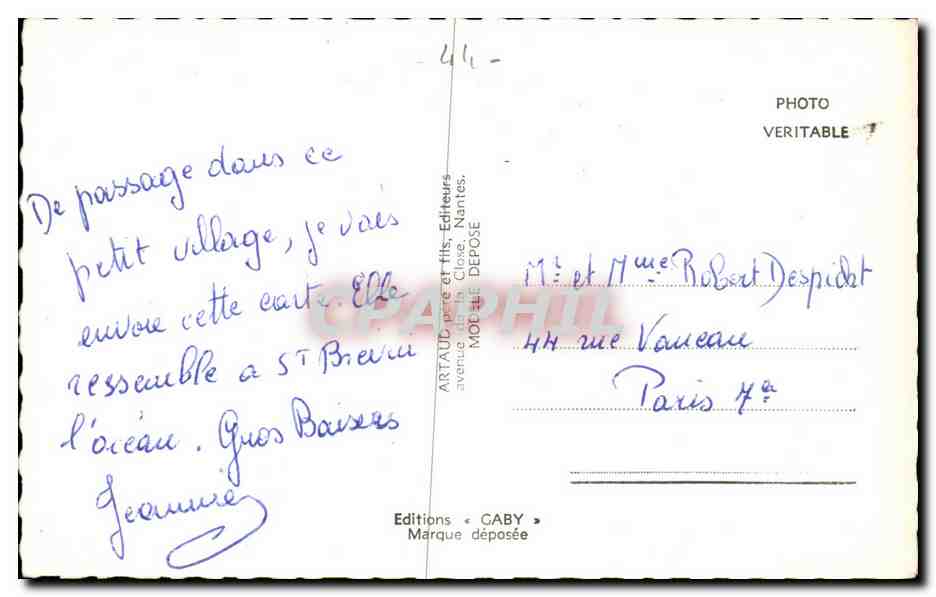 - 44 -
PHOTO
VERITABLE
De passage dans ce
petit village, je vais
envoie cette carte. Elle
ressemble a ST Brevin
l'océan. Gros Baisers
Jeannine
ARTAUD père et fils, Editeurs
avenue de la Close, Nantes.
MODELE DEPOSE
CPAPHIL
Mr et Mme Robert Despidat
44 rue Vaneau
Paris 7e
Editions « GABY »
Marque déposée